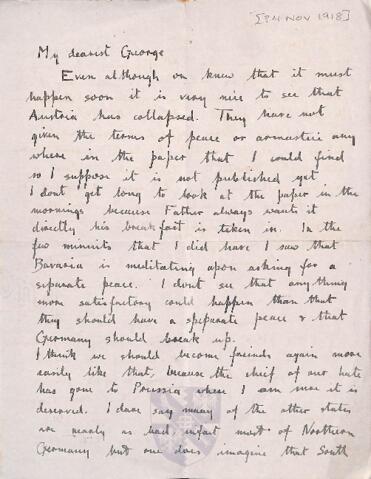 [?4 NOV 1918]
My dearest George
Even although on knew that it must
happen soon it is very nice to see that
Austria has collapsed. They have not
given the terms of peace or armastice any
where in the paper that I could find
so I suppose it is not published yet
I dont get long to look at the paper in the
mornings because Father always wants it
directly his breakfast is taken in. In the
few minuits that I did have I saw that
Bavaria is meditating upon asking for a
siparate peace. I dont see that anything
more satisfactory could happen than that
they should have a speparate peace & that
Germany should break up.
I think we should become freinds again more
easily like that, because the cheif of our hate
has gone to Prussia where I am sure it is
deserved. I dare say many of the other states
are nearly as bad, infact most of Northern
Germany but one does imagine that South